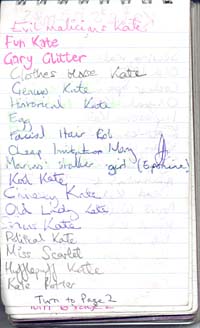 Evil Malicious Kate
Fun Kate
Gary Glitter
Clothes Kate
Genius Kate
Historical Kate
Egg
Facial Hair Rob
Cheap Imitation Mary
Marius' stalker girl (Eponine)
Kool Kate
Kate
Old Lady Kate
Kate
Political Kate
Miss Scarlet
Hufflepuff Kate
Kate Potter
Turn to Page 2